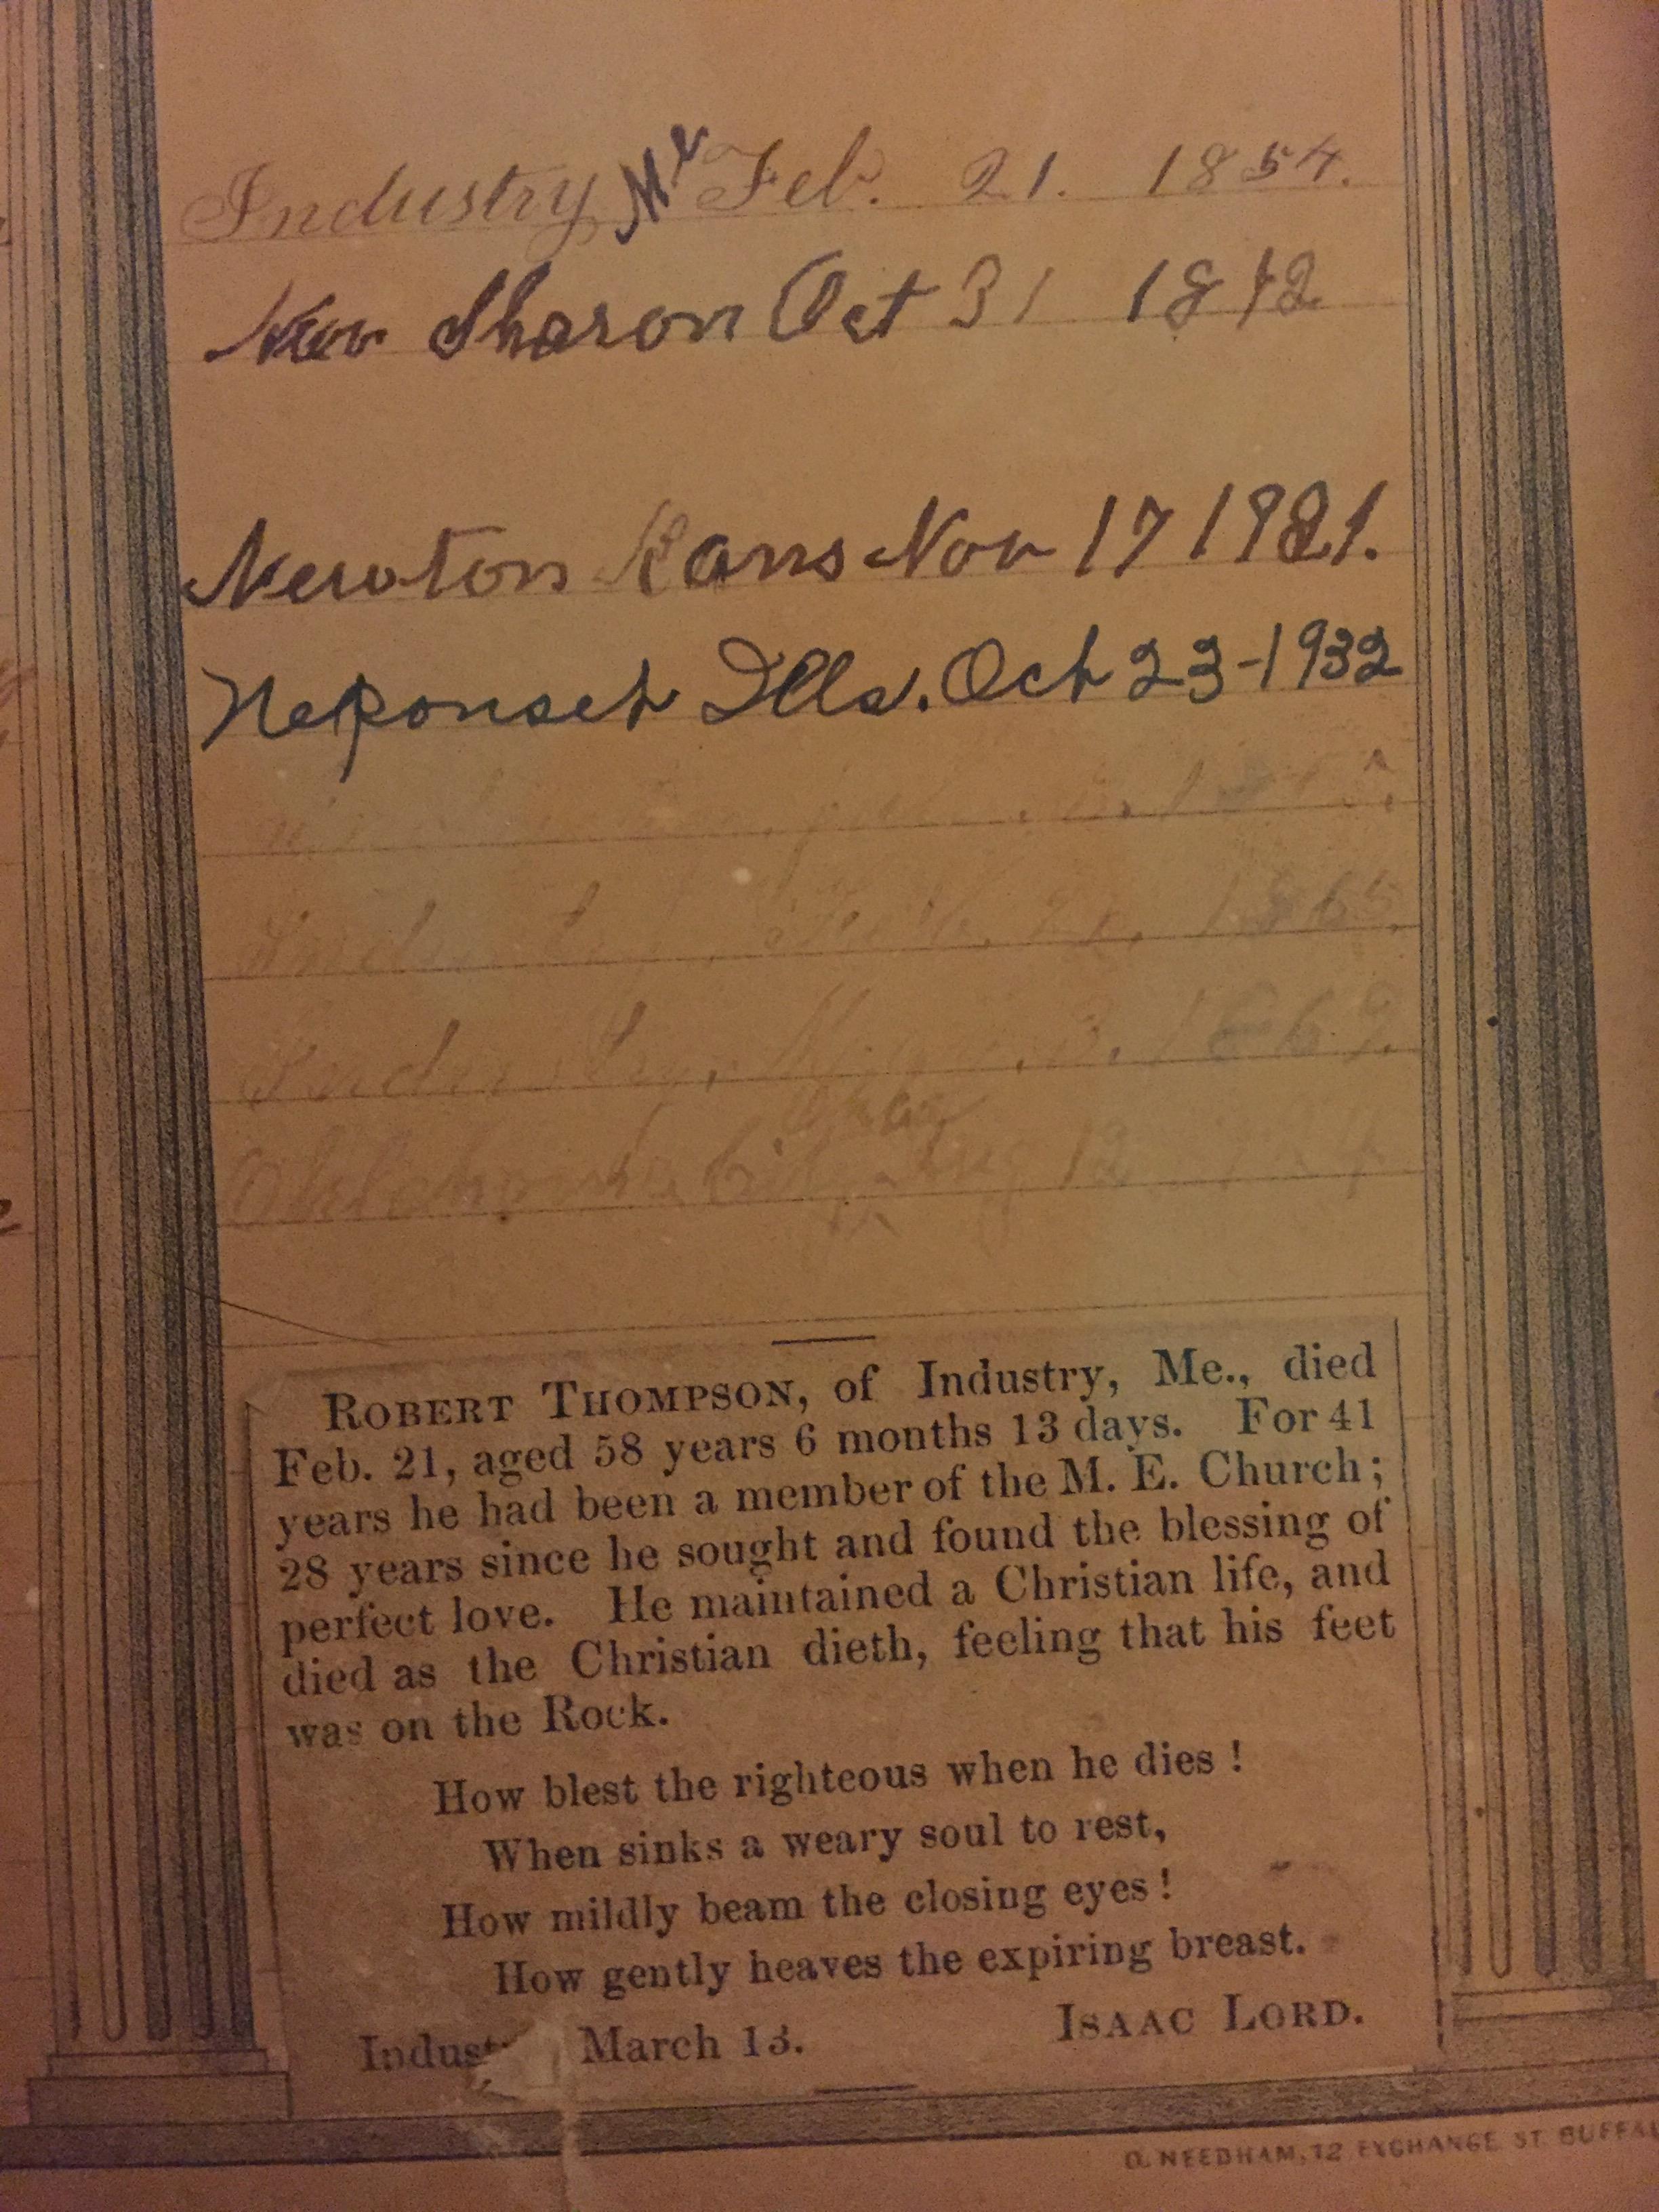 Industry Me Feb. 21. 1854.
New Sharon Oct 31 1872
Newton Kans Nov 17 1921.
Neponset Ills. Oct 23-1932
Industry, 21, 1865.
Industry, 3. 1869.
Okla
Oklahoma City Aug 12
ROBERT THOMPSON, of Industry, Me., died
Feb. 21, aged 58 years 6 months 13 days. For 41
years he had been a member of the M. E. Church;
28 years since he sought and found the blessing of
perfect love. He maintained a Christian life, and
died as the Christian dieth, feeling that his feet
was on the Rock.
How blest the righteous when he dies!
When sinks a weary soul to rest,
How mildly beam the closing eyes!
How gently heaves the expiring breast.
ISAAC LORD.
Indust March 13.
D. NEEDHAM, 12 EXCHANGE ST. BUFFAL